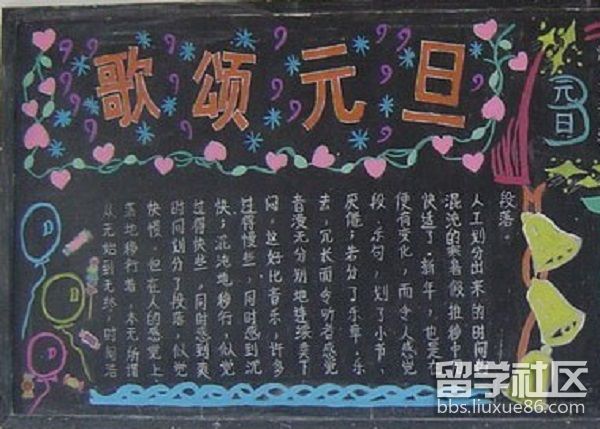 歌颂元旦
元旦
从无始到无终,时间浩
荡地移行着,本无所谓
快慢。但在人的感觉上
时间划分了段落,似觉
过得快些,同时感到爽
快;混沌地移行,似觉
过得慢些,同时感到沉
闷。这好比音乐,许多
音漫无分别地连续奏下
去,冗长而令听者感觉
厌倦;若分了乐章、乐
段、乐句,划了小节、
便有变化,而令人感觉
快适了。新年,也是在
混沌的寒暑假推移中
人工划分出来的时间的
段落。
留学社区
bbs.liuxue86.com